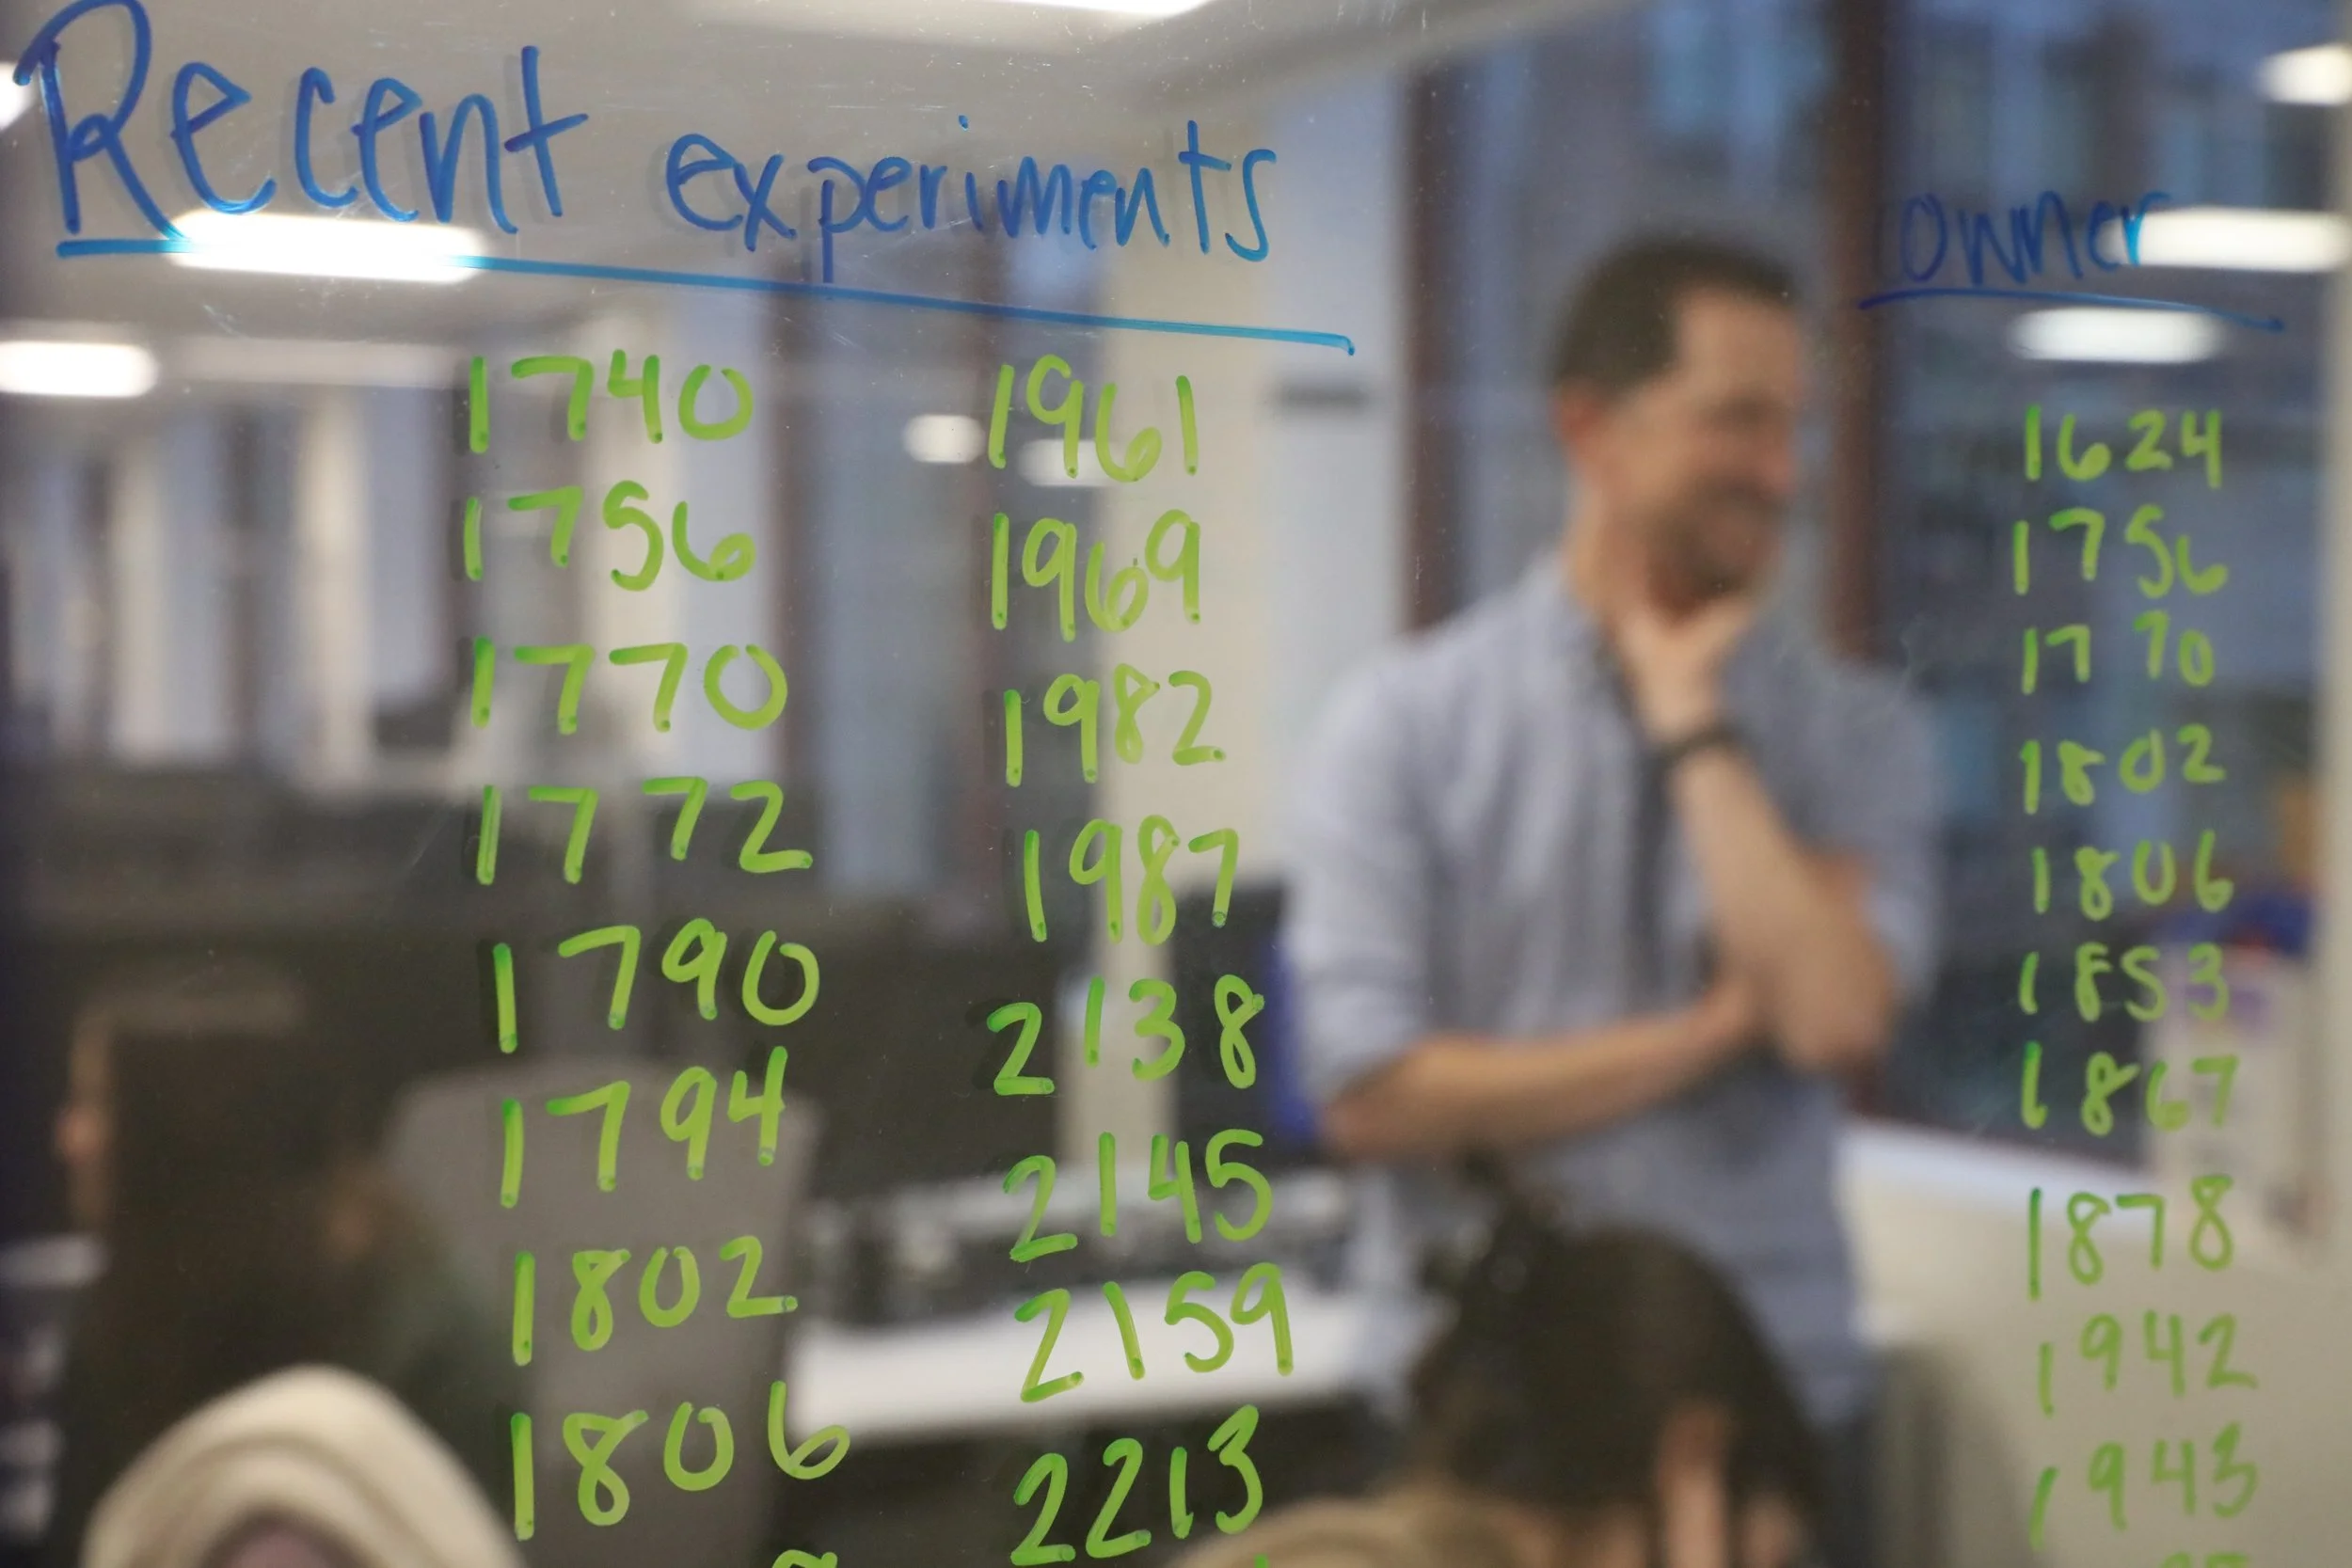 Recent experiments
1740
1756
1770
1772
1790
1794
1802
1806
1961
1969
1982
1987
2138
2145
2159
2213
owner
1624
1756
1770
1802
1806
1853
1867
1878
1942
1943